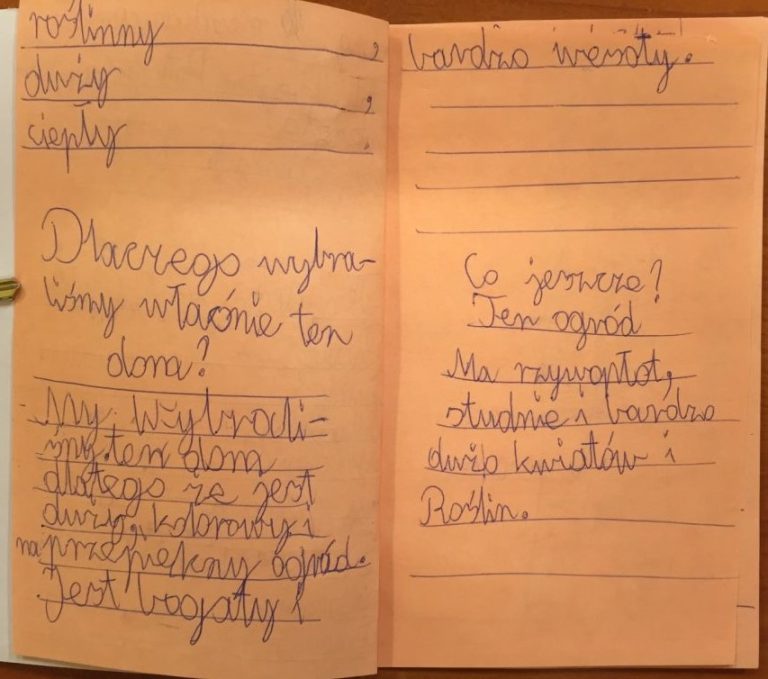 roślinny,
duży,
ciepły.
Dlaczego wybra-
liśmy właśnie ten
dom?
My wybrali-
śmy ten dom
dlatego że jest
duży, kolorowy i
ma przepiękny ogród.
Jest bogaty i
bardzo wesoły.
Co jeszcze?
Ten ogród
Ma rzywopłot,
studnie i bardzo
dużo kwiatów i
Roślin.